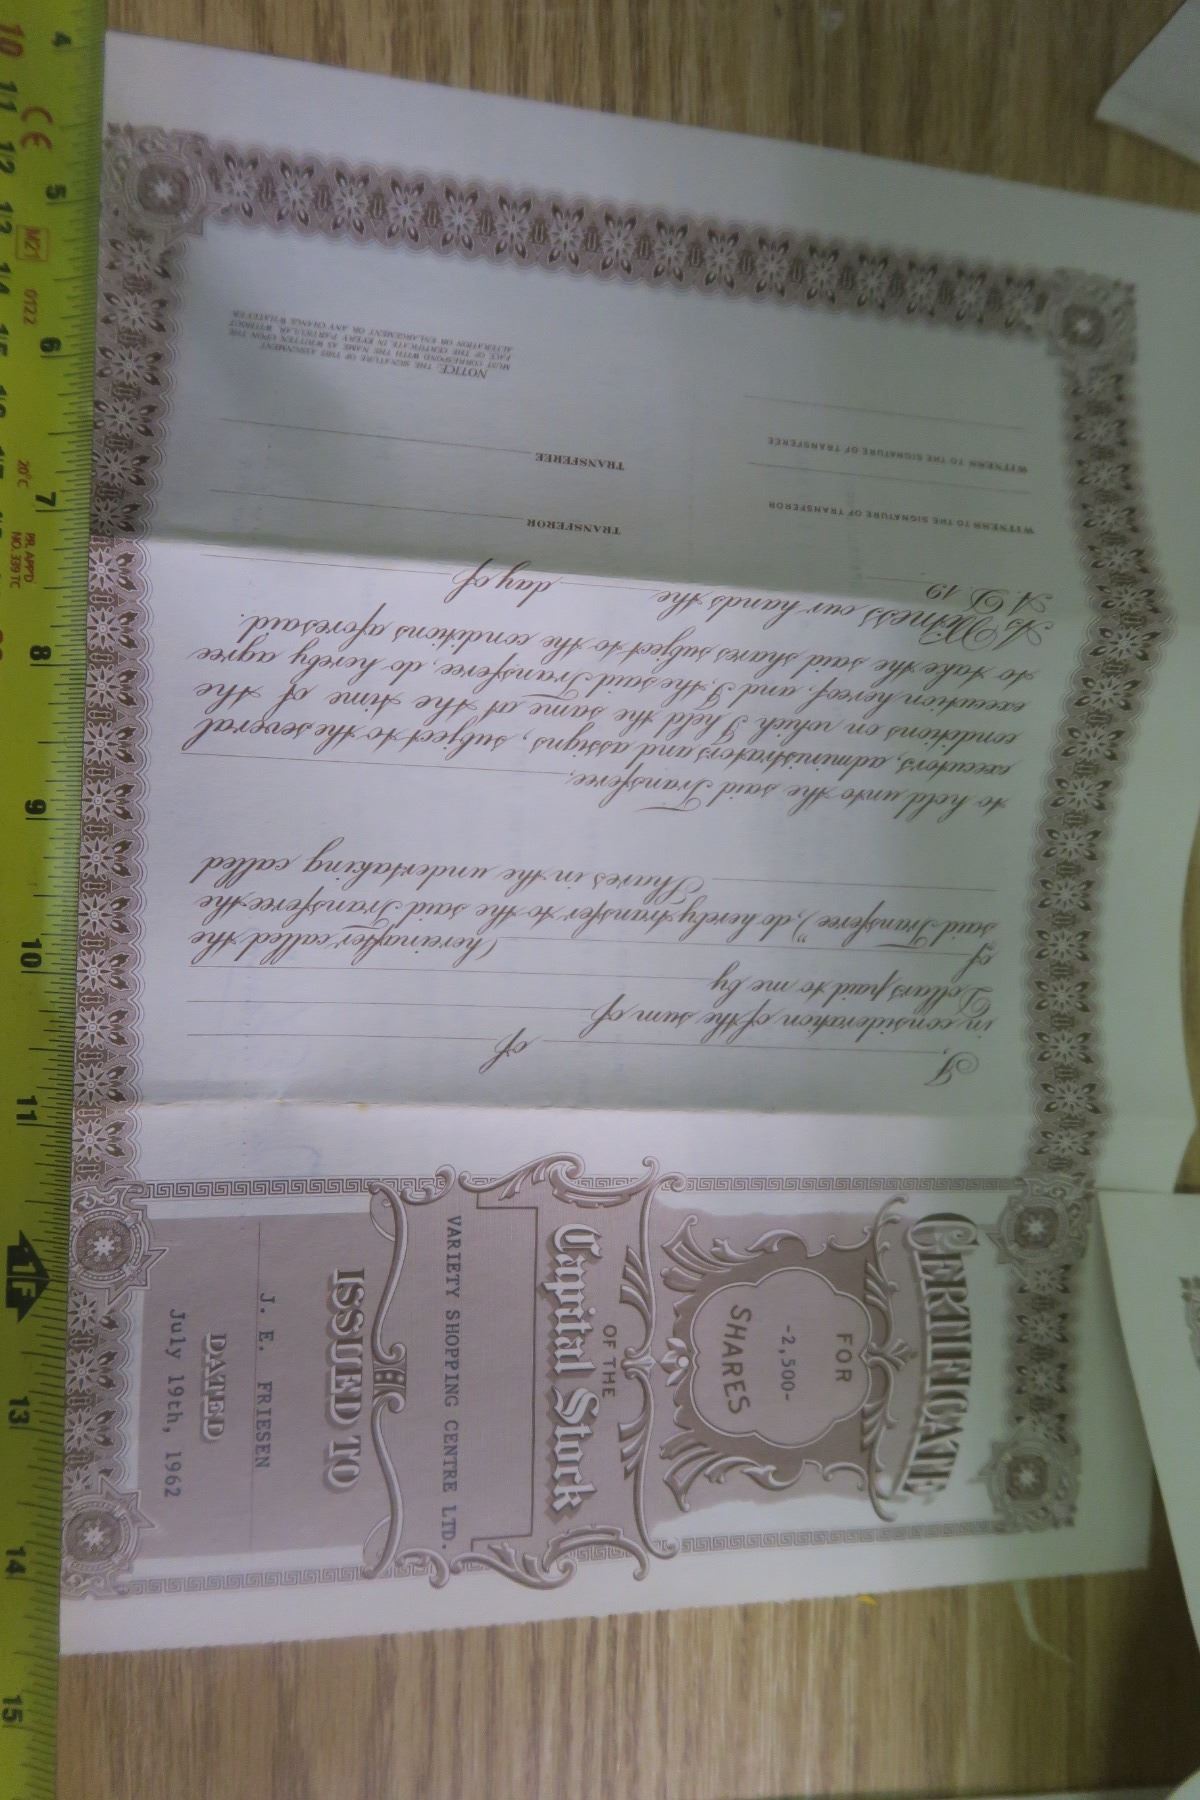 CERTIFICATE
FOR
-2,500-
SHARES
OF THE
Capital Stock
VARIETY SHOPPING CENTRE LTD.
ISSUED TO
J. E. FRIESEN
DATED
July 19th, 1962
I, of
in consideration of the sum of
Dollars paid to me by
of (hereinafter called the
said Transferee") do hereby transfer to the said Transferee the
Shares in the undertaking called
to hold unto the said Transferee,
executors, administrators and assigns, subject to the several
conditions on which I held the same at the time of the
execution hereof, and I, the said Transferee, do hereby agree
to take the said shares subject to the conditions aforesaid.
As Witness our hands the day of
A. D. 19
WITNESS TO THE SIGNATURE OF TRANSFEROR
TRANSFEROR
WITNESS TO THE SIGNATURE OF TRANSFEREE
TRANSFEREE
NOTICE, THE SIGNATURE OF THIS ASSIGNMENT
MUST CORRESPOND WITH THE NAME AS WRITTEN UPON THE
FACE OF THE CERTIFICATE IN EVERY PARTICULAR WITHOUT
ALTERATION OR ENLARGEMENT OR ANY CHANGE WHATEVER
4 5 6 7 8 9 10 11 1F 13 14 15
10 11 12 13 14 15 16
CE
M21
0122
20°C
PR. APP'D
NO. 339 TC